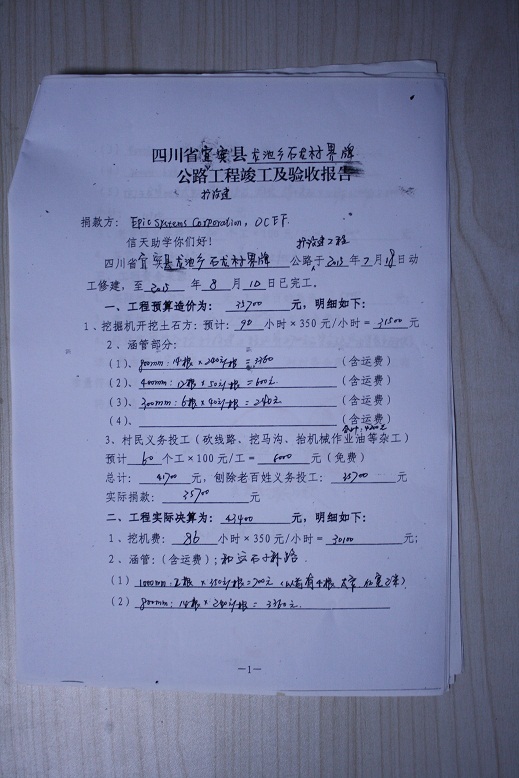 四川省宜宾县龙池乡石龙村界牌
公路工程竣工及验收报告
扩改建
捐款方：Epic Systems Corporation, OCEF
信天助学你们好！
扩改建工程
四川省宜宾县龙池乡石龙村界牌公路于2013年7月18日动
工修建，至2013年8月10日已完工。
一、工程预算造价为：35700元，明细如下：
1、挖掘机开挖土石方：预计：90小时×350元/小时=31500元
2、涵管部分：
（1）、800mm：14根×240元/根=3360（含运费）
（2）、400mm：12根×50元/根=600元（含运费）
（3）、300mm：6根×40元/根=240元（含运费）
（4）、（含运费）
合计：4200元
3、村民义务投工（砍线路、挖马沟、抬机械作业油等杂工）
预计60个工×100元/工=6000元（免费）
总计：41700元，刨除老百姓义务投工：35700元
实际捐款：35700元
二、工程实际决算为：43400元，明细如下：
1、挖机费：86小时×350元/小时=30100元；
2、涵管：（含运费）；和运石子补路
（1）1000mm：2根×350元/根=700元（以前有4根
（2）800mm：14根×240元/根=3360元
—1—